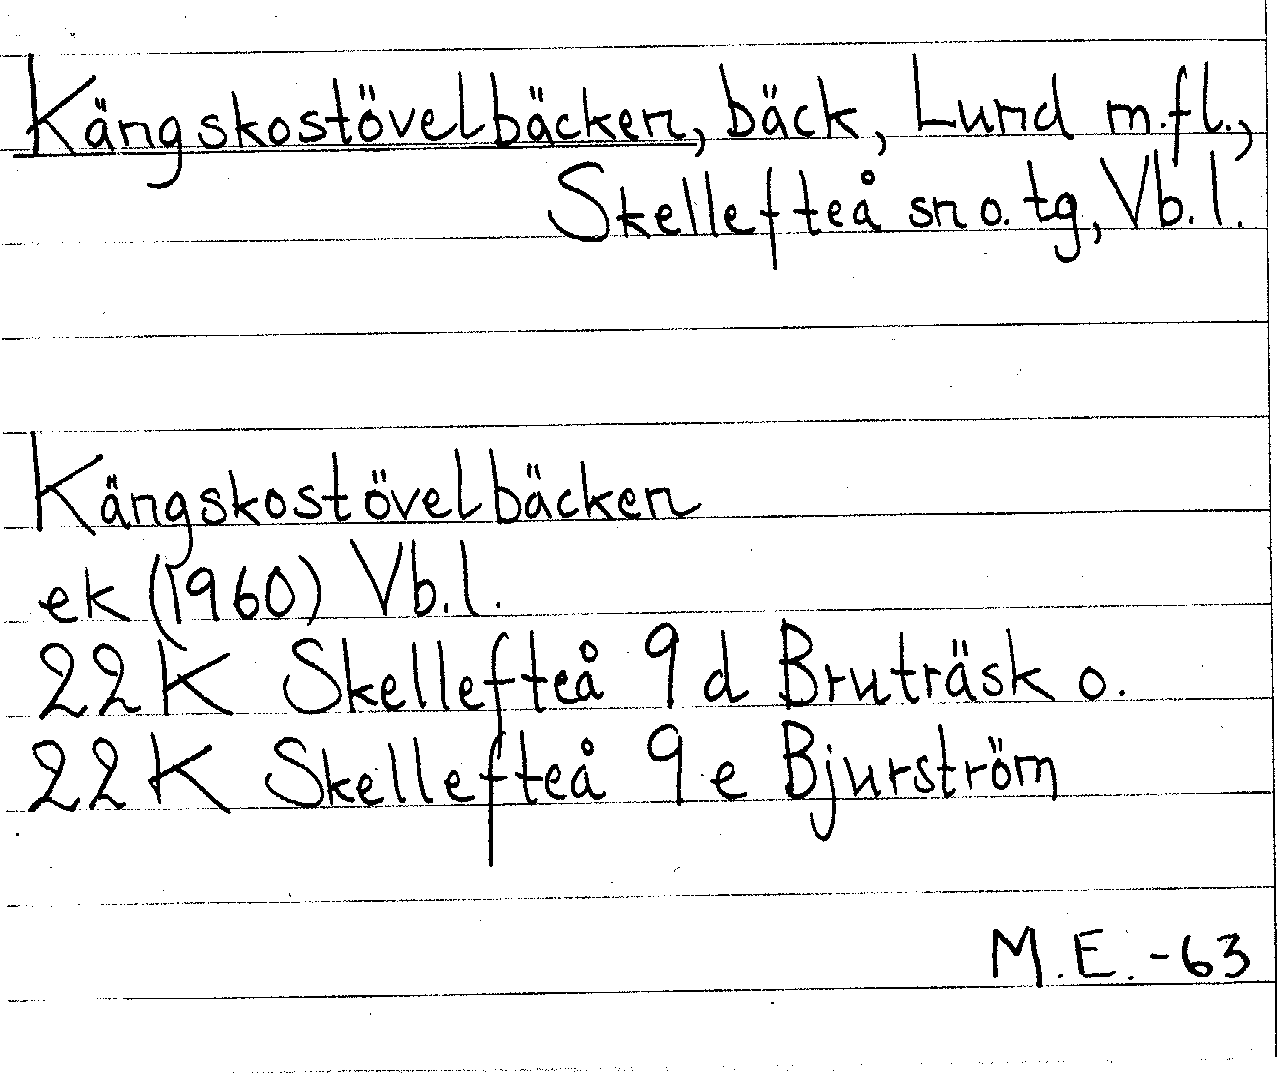 Kängskostövelbäcken, bäck, Lund m.fl.,
Skellefteå sn o. tg, Vb.l.
Kängskostövelbäcken
ek (1960) Vb.l.
22K Skellefteå 9d Bruträsk o.
22K Skellefteå 9e Bjurström
M.E.-63